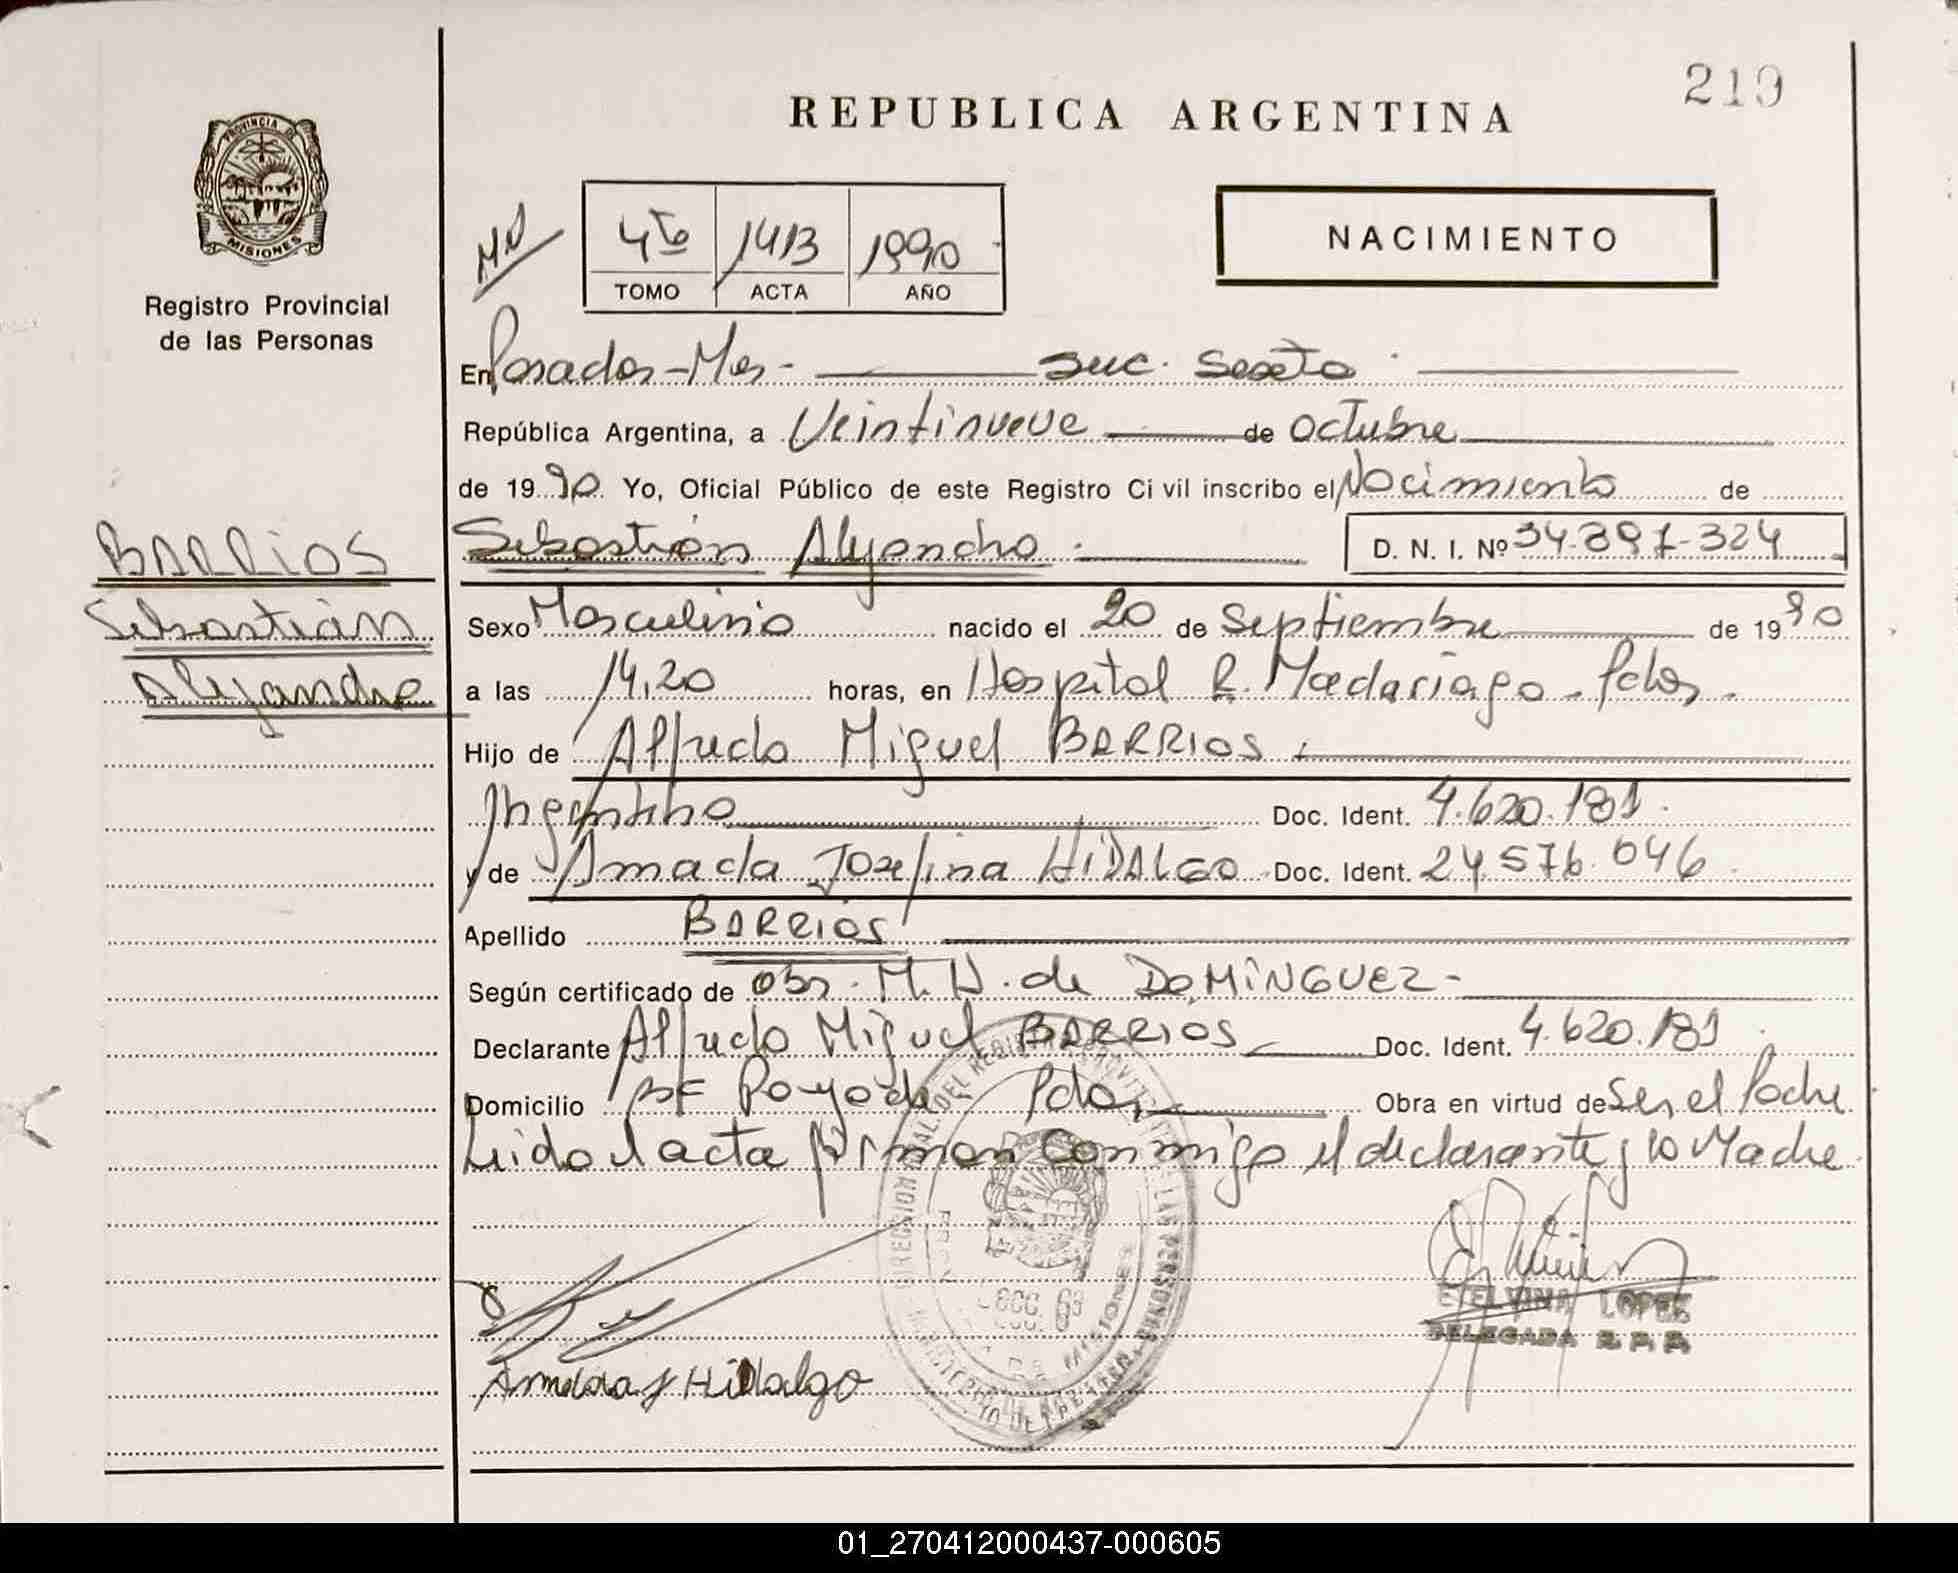 219
REPUBLICA ARGENTINA
PROVINCIA DE
MISIONES
Registro Provincial
de las Personas
4to 1413 1990
TOMO ACTA AÑO
NACIMIENTO
En Posadas-Mes- Suc. Sexta
República Argentina, a Veintinueve de octubre
de 1990 Yo, Oficial Público de este Registro Ci vil inscribo el Nacimiento de
BARRIOS
Sebastián Alejandro D. N. I. Nº 34.897.324
Sebastián
Alejandro
Sexo Masculino nacido el 20 de Septiembre de 1990
a las 14,20 horas, en Hospital R. Madariaga - Pdas.
Hijo de Alfredo Miguel BARRIOS
Argentino Doc. Ident. 4.620.181
y de Amada Josefina HIDALGO Doc. Ident. 24.576.046
Apellido BARRIOS
Según certificado de obs. M. N. de DOMINGUEZ-
Declarante Alfredo Miguel BARRIOS Doc. Ident. 4.620.181
Domicilio Pdas Obra en virtud de Ser el Padre
Leida el acta firman conmigo el declarante y la Madre
ETELVINA LOPEZ
DELEGADA R.P.P.
MISIONES
Amada J Hidalgo
01_270412000437-000605